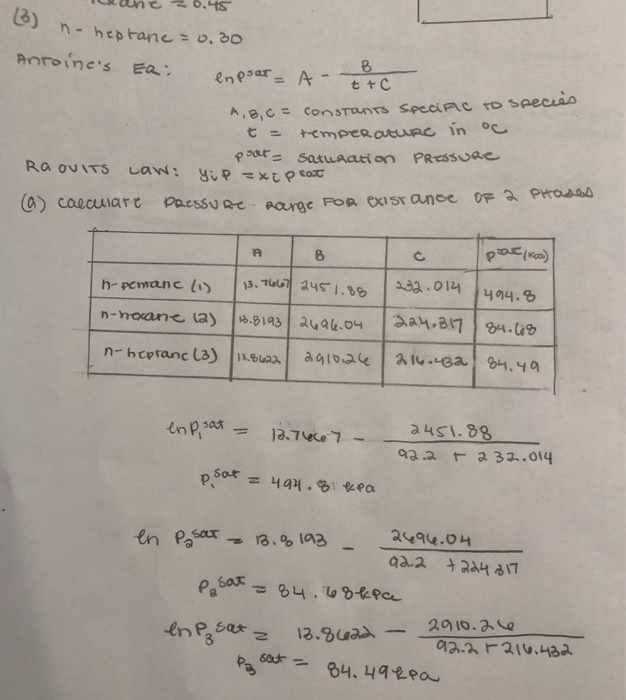 = 0.45
(3) n-heptane = 0.30
Antoine's Eq: ln psat = A - B / t + C
A, B, C = constants specific to species
t = temperature in °C
psat = saturation pressure
Raoults Law: yiP = xi psat
(a) calculate pressure range for existance of 2 phases
A B C psat (kPa)
n-pentane (1) 13.7667 2451.88 232.014 494.8
n-hexane (2) 13.8193 2696.04 224.317 84.68
n-heptane (3) 13.8622 2910.26 216.432 84.49
ln P1 sat = 13.7667 - 2451.88 / 92.2 + 232.014
P1 sat = 494.81 kpa
ln P2 sat = 13.8193 - 2696.04 / 92.2 + 224.317
P2 sat = 84.68 kpa
ln P3 sat = 13.8622 - 2910.26 / 92.2 + 216.432
P3 sat = 84.49 kpa